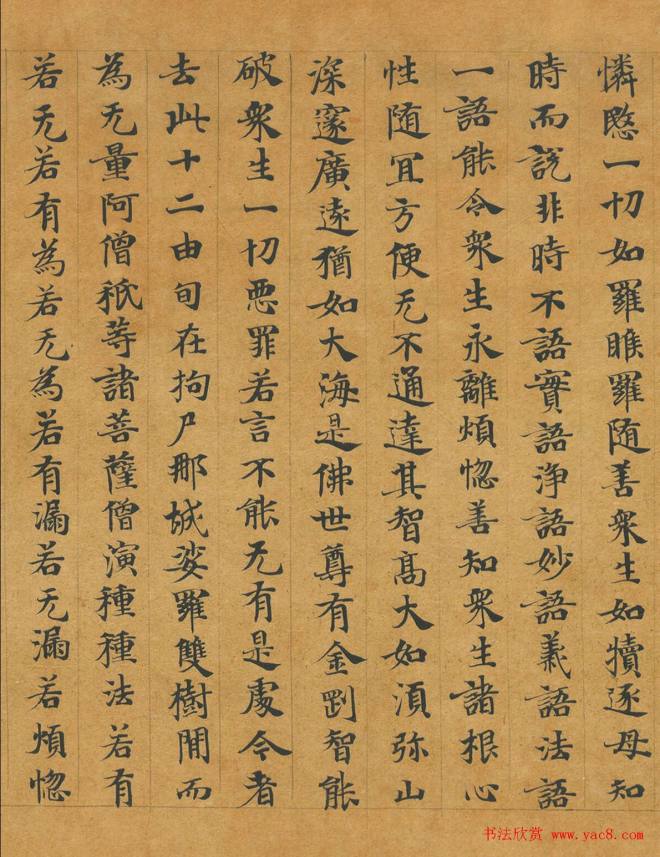 憐愍一切如羅睺羅随善衆生如犢逐母知
時而説非時不語實語浄語妙語義語法語
一語能令衆生永離煩惚善知衆生諸根心
性随冝方便无不通達其智髙大如湏弥山
深邃廣遠猶如大海是佛世尊有金剛智能
破衆生一切悪罪若言不能无有是處今者
去此十二由旬在拘尸那城娑羅雙樹閒而
為无量阿僧祇等諸菩薩僧演種種法若有
若无若有為若无為若有漏若无漏若煩惚
书法欣赏 www.yac8.com